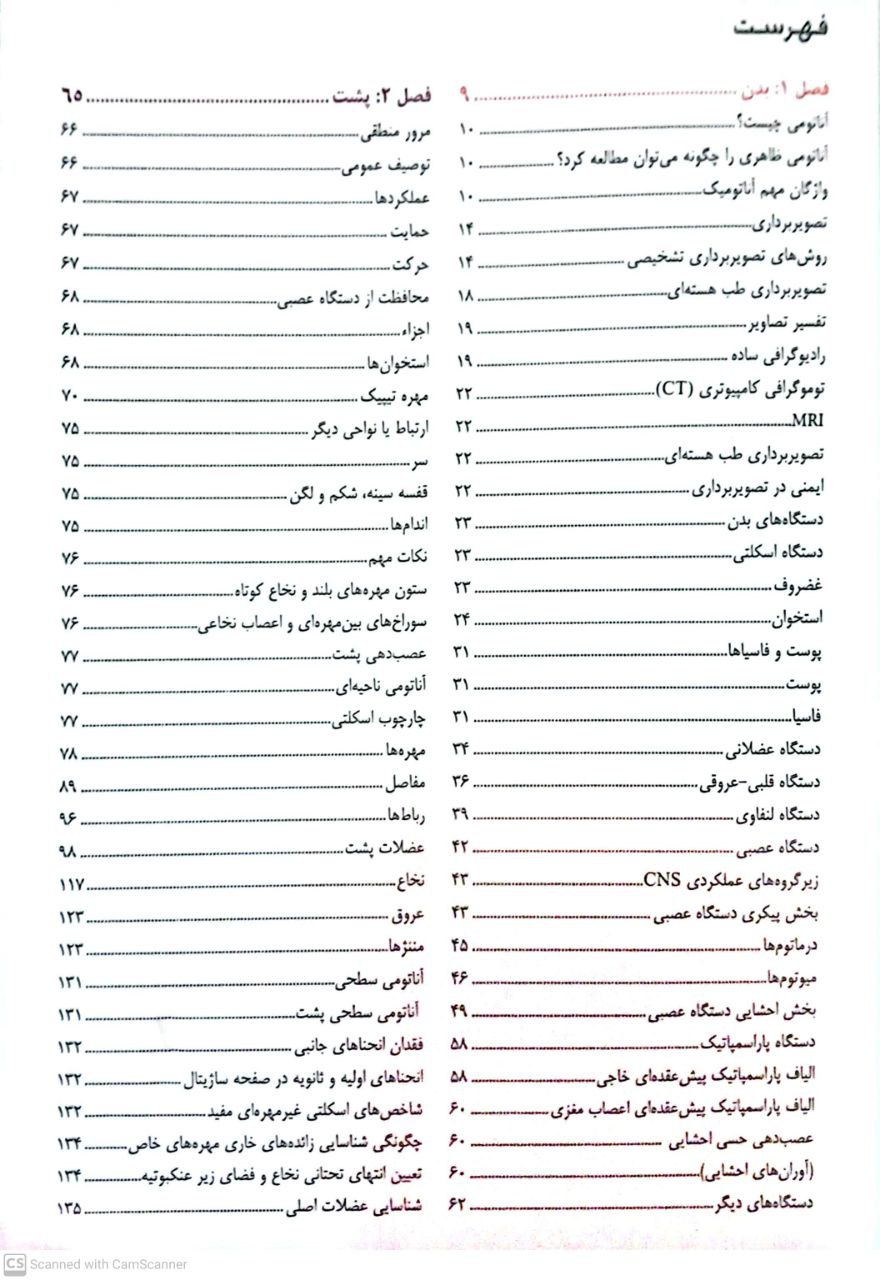 فهرست
فصل ۱: بدن ........ ۹
آناتومی چیست؟ ........ ۱۰
آناتومی ظاهری را چگونه می‌توان مطالعه کرد؟ ........ ۱۰
واژگان مهم آناتومیک ........ ۱۰
تصویربرداری ........ ۱۴
روش‌های تصویربرداری تشخیصی ........ ۱۴
تصویربرداری طب هسته‌ای ........ ۱۸
تفسیر تصاویر ........ ۱۹
رادیوگرافی ساده ........ ۱۹
توموگرافی کامپیوتری (CT) ........ ۲۲
MRI ........ ۲۲
تصویربرداری طب هسته‌ای ........ ۲۲
ایمنی در تصویربرداری ........ ۲۲
دستگاه‌های بدن ........ ۲۳
دستگاه اسکلتی ........ ۲۳
غضروف ........ ۲۳
استخوان ........ ۲۴
پوست و فاسیاها ........ ۳۱
پوست ........ ۳۱
فاسیا ........ ۳۱
دستگاه عضلانی ........ ۳۴
دستگاه قلبی-عروقی ........ ۳۶
دستگاه لنفاوی ........ ۳۹
دستگاه عصبی ........ ۴۲
زیرگروه‌های عملکردی CNS ........ ۴۳
بخش پیکری دستگاه عصبی ........ ۴۳
درماتوم‌ها ........ ۴۵
میوتوم‌ها ........ ۴۶
بخش احشایی دستگاه عصبی ........ ۴۹
دستگاه پاراسمپاتیک ........ ۵۸
الیاف پاراسمپاتیک پیش‌عقده‌ای خاجی ........ ۵۸
الیاف پاراسمپاتیک پیش‌عقده‌ای اعصاب مغزی ........ ۶۰
عصب‌دهی حسی احشایی ........ ۶۰
(آوران‌های احشایی) ........ ۶۰
دستگاه‌های دیگر ........ ۶۲
فصل ۲: پشت ........ ۶۵
مرور منطقی ........ ۶۶
توصیف عمومی ........ ۶۶
عملکردها ........ ۶۷
حمایت ........ ۶۷
حرکت ........ ۶۷
محافظت از دستگاه عصبی ........ ۶۸
اجزاء ........ ۶۸
استخوان‌ها ........ ۶۸
مهره تیپیک ........ ۷۰
ارتباط یا نواحی دیگر ........ ۷۵
سر ........ ۷۵
قفسه سینه، شکم و لگن ........ ۷۵
اندام‌ها ........ ۷۵
نکات مهم ........ ۷۶
ستون مهره‌های بلند و نخاع کوتاه ........ ۷۶
سوراخ‌های بین‌مهره‌ای و اعصاب نخاعی ........ ۷۶
عصب‌دهی پشت ........ ۷۷
آناتومی ناحیه‌ای ........ ۷۷
چارچوب اسکلتی ........ ۷۷
مهره‌ها ........ ۷۸
مفاصل ........ ۸۹
رباط‌ها ........ ۹۶
عضلات پشت ........ ۹۸
نخاع ........ ۱۱۷
عروق ........ ۱۲۳
مننژها ........ ۱۲۳
آناتومی سطحی ........ ۱۳۱
آناتومی سطحی پشت ........ ۱۳۱
فقدان انحناهای جانبی ........ ۱۳۲
انحناهای اولیه و ثانویه در صفحه ساژیتال ........ ۱۳۲
شاخص‌های اسکلتی غیرمهره‌ای مفید ........ ۱۳۲
چگونگی شناسایی زائده‌های خاری مهره‌های خاص ........ ۱۳۴
تعیین انتهای تحتانی نخاع و فضای زیر عنکبوتیه ........ ۱۳۴
شناسایی عضلات اصلی ........ ۱۳۵
CS Scanned with CamScanner